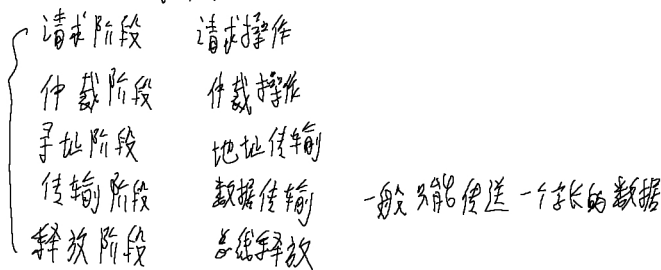 请求阶段 请求操作
仲裁阶段 仲裁操作
寻址阶段 地址传输
传输阶段 数据传输 一般只能传送一个字长的数据
释放阶段 总线释放